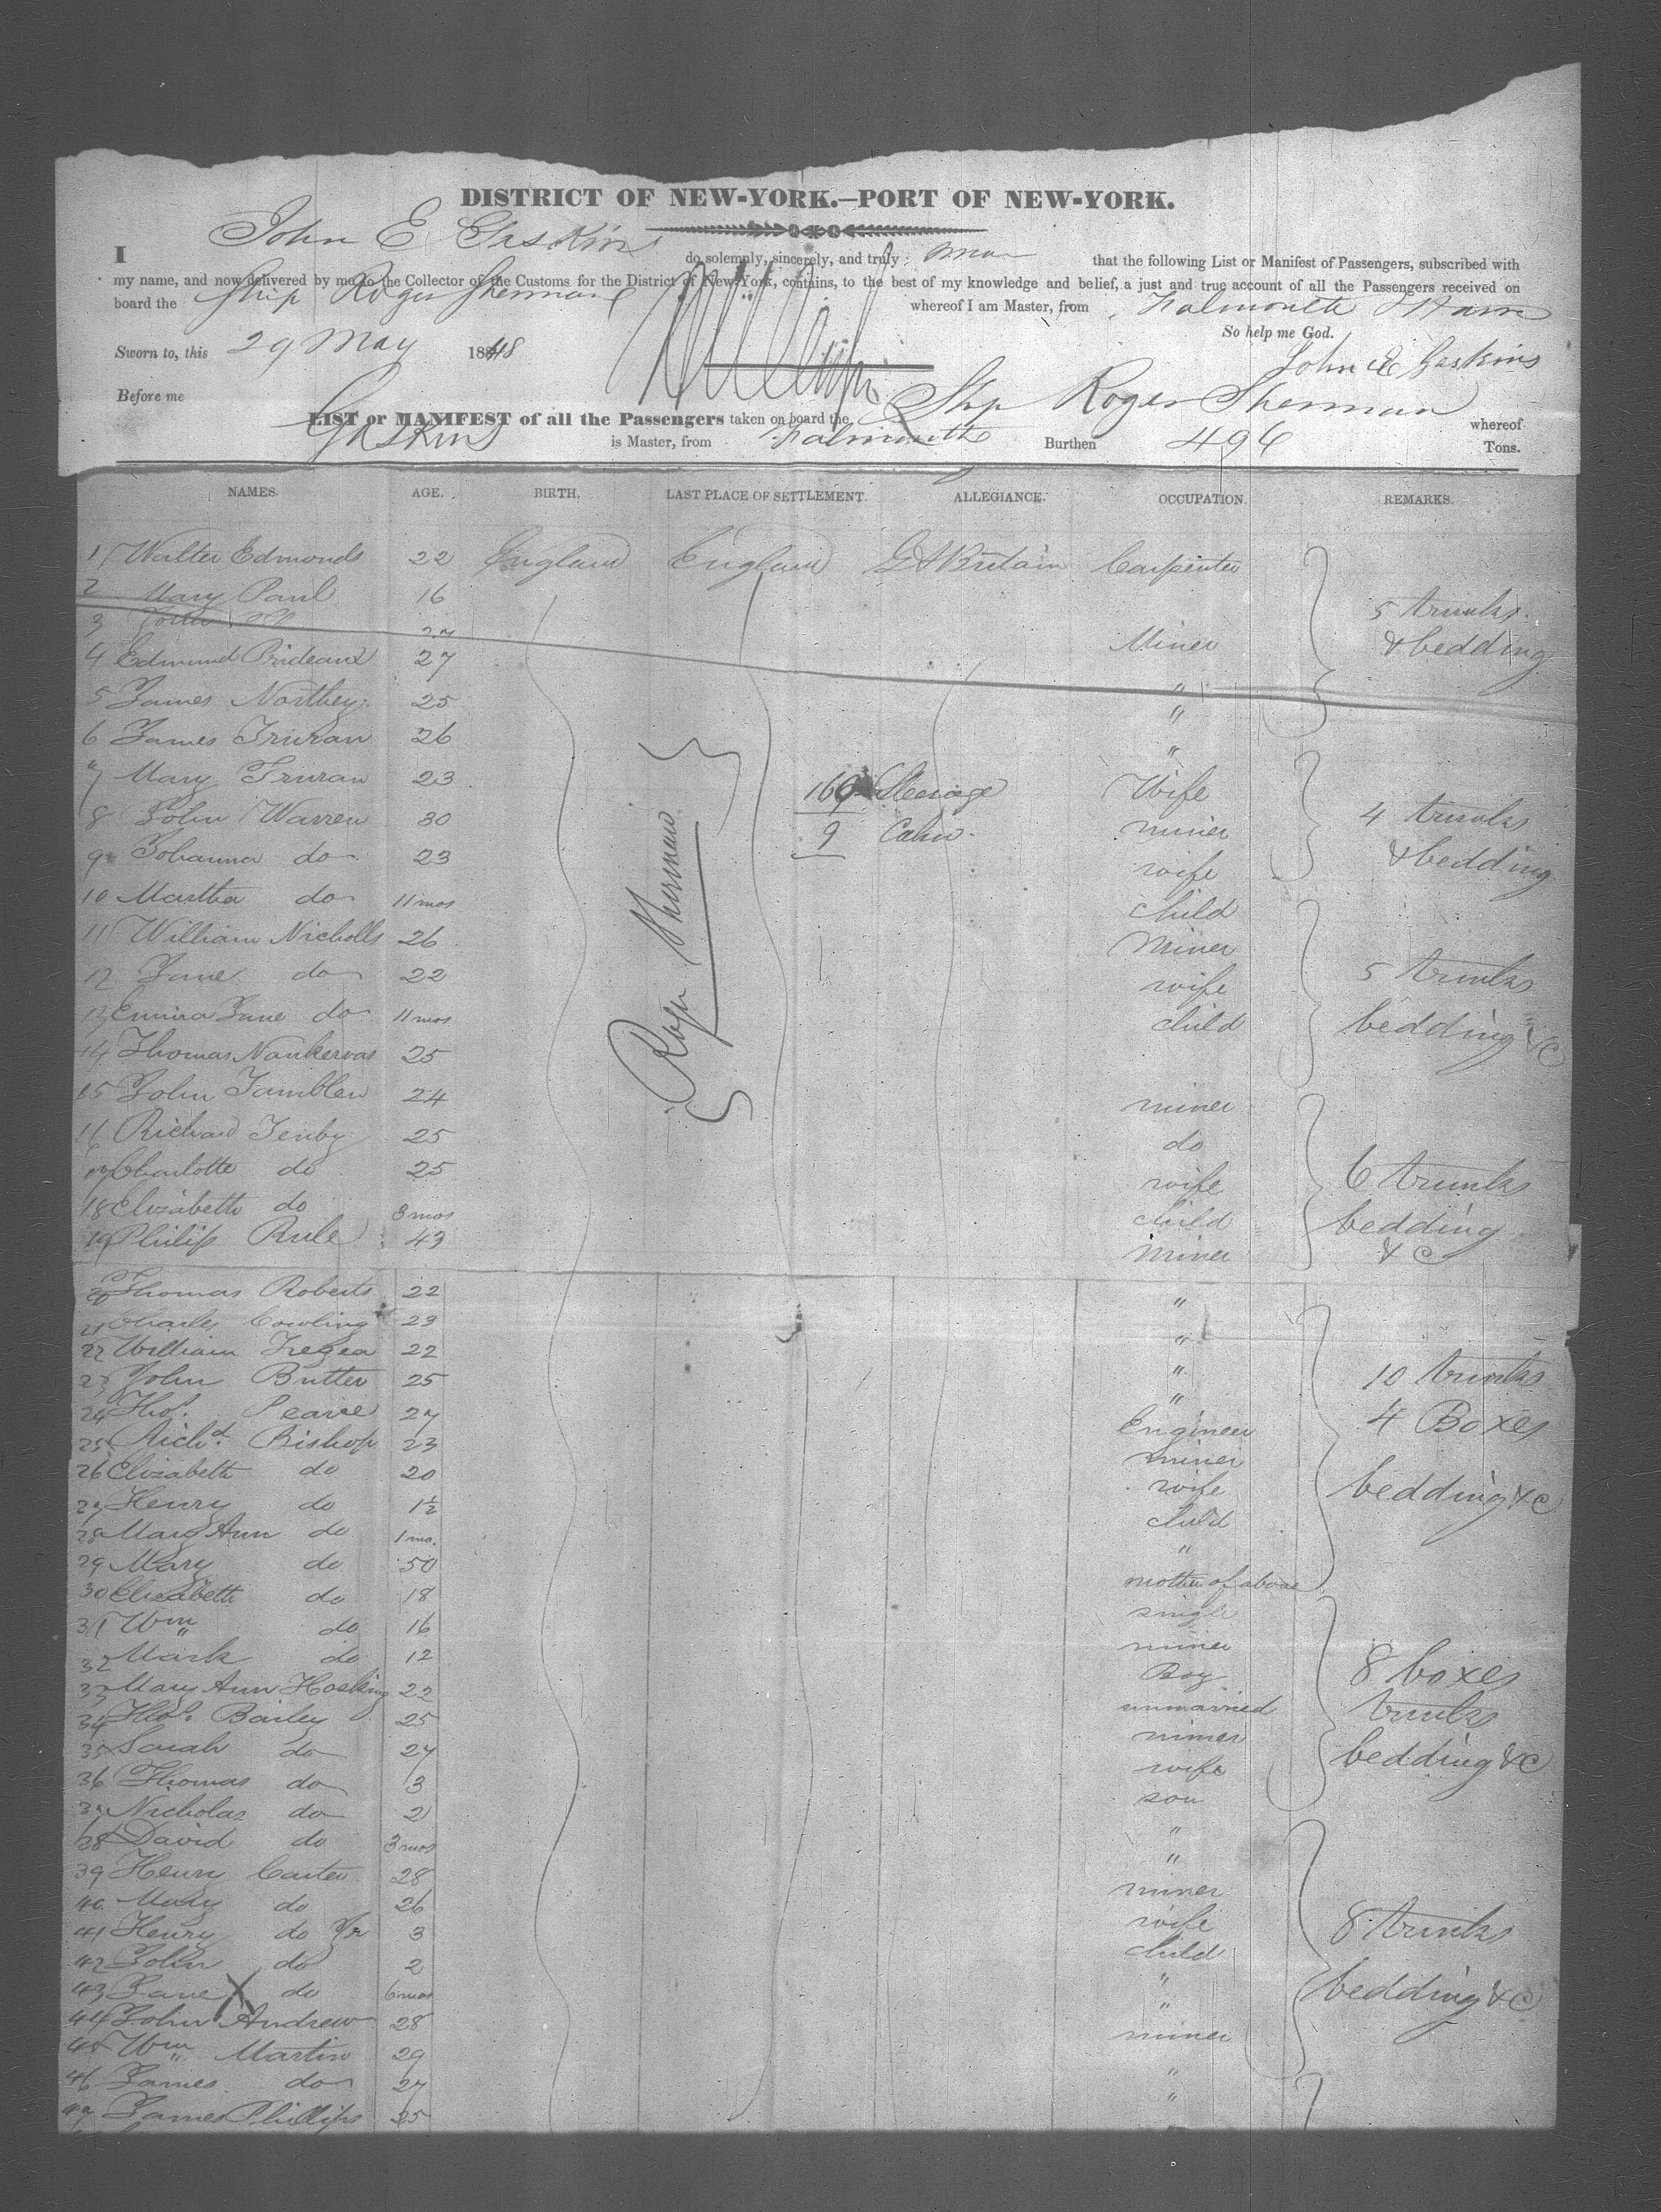 DISTRICT OF NEW-YORK.—PORT OF NEW-YORK.
I John E Gaskins do solemnly, sincerely, and truly that the following List or Manifest of Passengers, subscribed with
my name, and now delivered by me to the Collector of the Customs for the District of New-York, contains, to the best of my knowledge and belief, a just and true account of all the Passengers received on
board the Ship Roger Sherman whereof I am Master, from Falmouth
So help me God.
Sworn to, this 29 May 1848 John E Gaskins
Before me
LIST or MANIFEST of all the Passengers taken on board the Ship Roger Sherman whereof
Gaskins is Master, from Falmouth Burthen 496 Tons.
NAMES. AGE. BIRTH. LAST PLACE OF SETTLEMENT. ALLEGIANCE. OCCUPATION. REMARKS.
1 Walter Edmonds 22 England England Gt Britain Carpenter
2 Mary Paul 16 5 trunks
3 John 27 Miner & bedding
4 Edmund Prideaux 27 "
5 James Northey 25 "
6 James Truran 26 "
7 Mary Truran 23 169 Steerage Wife
8 John Warren 30 9 Cabin miner 4 trunks
9 Johanna do 23 wife & bedding
10 Martha do 11 mos child
11 William Nicholls 26 Miner
12 Jane do 22 wife 5 trunks
13 Emma Jane do 11 mos child bedding &c
14 Thomas Nankervas 25
Roger Sherman
15 John Tamblen 24 miner
16 Richard Tenby 25 do
17 Charlotte do 25 wife 6 trunks
18 Elizabeth do 3 mos child bedding
19 Philip Rule 43 Miner & c
20 Thomas Roberts 22 "
21 Charles Cowling 23 "
22 William Tregea 22 "
23 John Butter 25 " 10 trunks
24 Thos. Pearce 27 Engineer 4 Boxes
25 Richd. Bishop 23 miner
26 Elizabeth do 20 wife bedding &c
27 Henry do 1½ child
28 Mary Ann do 1 mo. "
29 Mary do 50 mother of above
30 Elizabeth do 18 single
31 Wm do 16 miner
32 Mark do 12 Boy 8 boxes
33 Mary Ann Hosking 22 unmarried trunks
34 Thos. Bailey 25 miner
35 Sarah do 27 wife bedding &c
36 Thomas do 3 son
37 Nicholas do 2 "
38 David do 3 mos "
39 Henry Carter 28 miner
40 Mary do 26 wife
41 Henry do Jr 3 child 8 trunks
42 John do 2 "
43 Jane X do 6 mos " bedding &c
44 John Andrew 28 miner
45 Wm Martin 29 "
46 James do 27 "
47 James Phillips 25